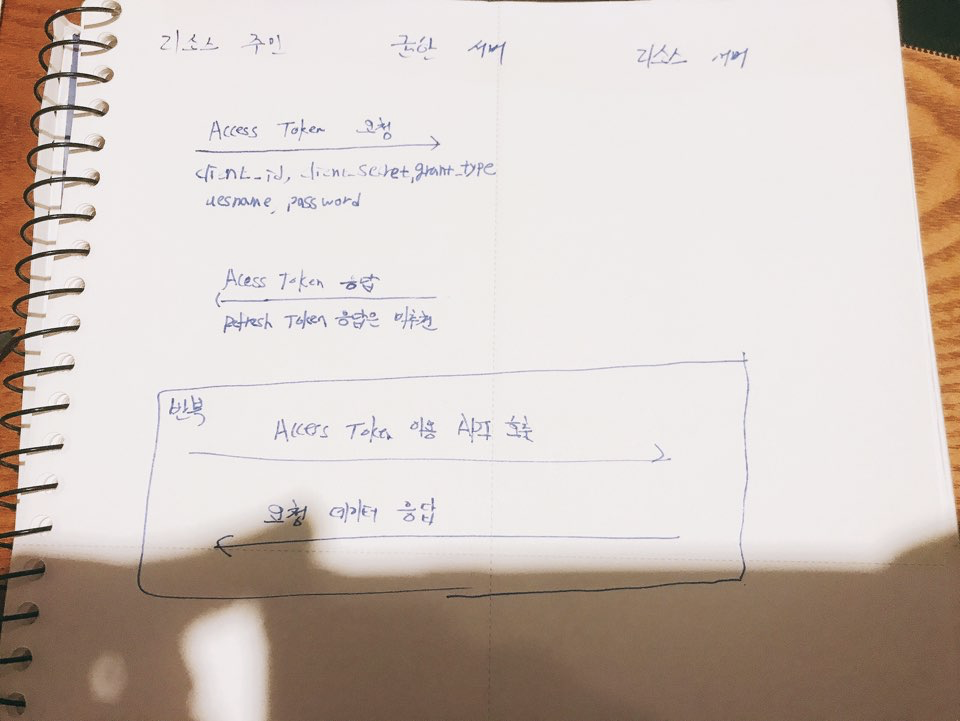 리소스 주인 권한 서버 리소스 서버
Access Token 요청
client_id, client_secret, grant_type
uesname, password
Acess Token 응답
Refresh Token 응답은 미추천
반복
Access Token 이용 API 호출
요청 데이터 응답